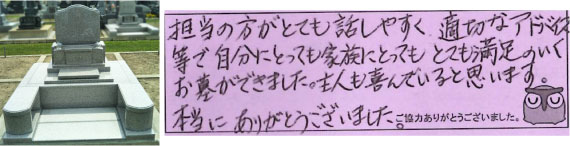 担当の方がとても話しやすく、適切なアドバイス
等で自分にとっても家族にとってもとても満足のいく
お墓ができました。主人も喜んでいると思います。
本当にありがとうございました。
ご協力ありがとうございました。